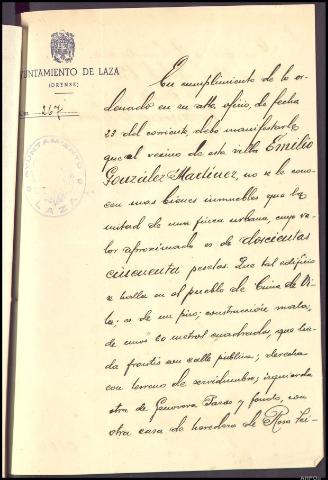 AYUNTAMIENTO DE LAZA
(ORENSE)
267
AYUNTAMIENTO
LAZA
En cumplimiento de lo or-
denado en su atto. oficio, de fecha
23 del corriente, debo manifestarle
que al vecino de esta villa Emilio
González Martínez, no se le cono-
cen mas bienes inmuebles que la
mitad de una finca urbana, cuyo va-
lor aproximado es de doscientas
cincuenta pesetas. Que tal edificio
se halla en el pueblo de Cima de Vi-
la; es de un piso; construcción mala;
de unos 60 metros cuadrados, que lin-
da frontis con calle pública; derecha
con terreno de servidumbre; izquierda
otra de Genoveva y fondo, con
otra casa de herederos de Rosa